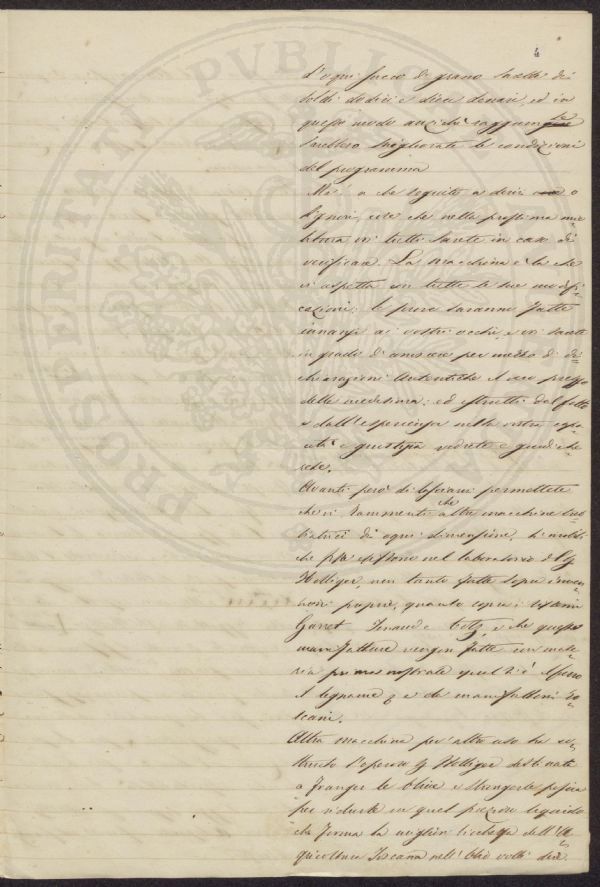 4
d'ogni sacco di grano saretti di
soldi dodici e dieci denari, ed in
questo modo anziché raggiungere
sarebbero migliorate le condizioni
del programma
Ma a che seguito a dirvi o
Signori, certo che nella prossima mie
titura voi tutti sarete in caso di
verificare. La macchina è la che
vi aspetta con tutte le sue modifi-
cazioni: le prove saranno fatte
innanzi ai vostri occhi, e voi sarete
in grado di conoscere per mezzo di di=
chiarazioni autentiche il vero prezzo
delle medesima: ed istruiti dal fatto
e dall'esperienza nella vostra capa
cità e giustizia vedrete e giudiche
rete.
Avanti però di lasciarvi permettete
che vi rammenti che altre macchine treb
biatrici di ogni dimensione, ed utili
che più esistono nel laboratorio del Sig
Holliger, non tanto fatte sopra inven
zioni proprie, quanto sopra i sistemi
Garret Renaud e Lotz, e che queste
manifatture vengon fatte con mate=
ria prima nostrale quel è il ferro
il legname e da manifattori to=
scani.
Altra macchina per altro uso ha co=
struito l'operoso Sig Holliger destinata
a franger le olive e stringerle poscia
per ridurle in quel prezioso liquido
che forma la miglior ricchezza dell'A=
gricoltura Toscana nell'Olio volli dire.
PROSPERITATI PVBLICAE